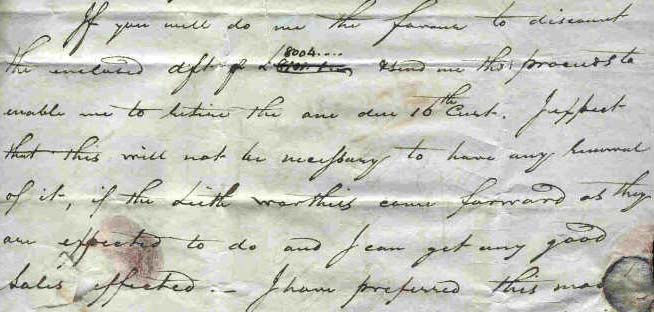 If you will do me the favour to discount
the enclosed dft of £ 8004.... & send me the proceeds to
enable me to retire the one due 16th Curt. I expect
that this will not be necessary to have any renewal
of it, if the Leith worthies come forward as they
are expected to do and I can get any good
Sales effected. — I have preferred this